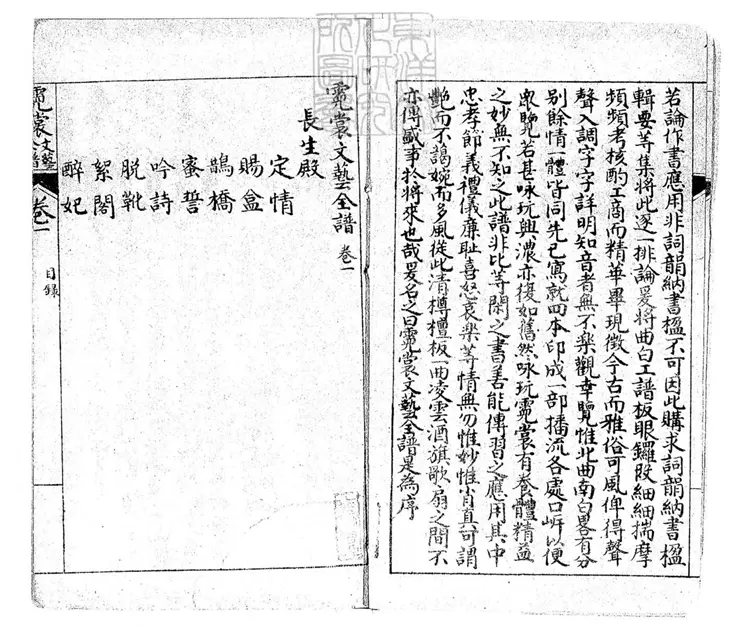 若論作書應用非詞韻納書楹不可因此購求詞韻納書楹
輯要等集將此逐一排論爰將曲白工譜板眼鑼段細細揣摩
頻頻考核酌工商而精華畢現徵今古而雅俗可風俾得聲
聲入調字字詳明知音者無不樂觀幸覽惟北曲南白畧有分
別餘情一體皆同先已寫就四本印成一部播流各處口岍以便
衆覽若甚咏玩興濃亦復如舊然咏玩霓裳有養體精益
之妙無不知之此譜非比等閑之書善能傳習之應用其中
忠孝節義禮儀廉耻喜怒哀樂等情無勿惟妙惟肖真可謂
艷而不謁婉而多風從此清樽檀板一曲凌雲酒旗歌扇之間不
亦傳盛事於將來也哉爰名之曰霓裳文藝全譜是為序
霓裳文藝全譜 卷一
長生殿
定情
賜盒
鵲橋
蜜誓
吟詩
脫靴
絮閣
醉妃
霓裳文藝全譜 卷一 目錄